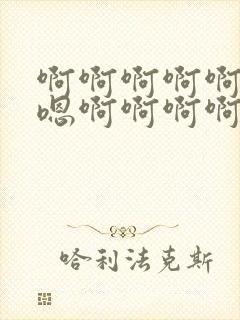 啊啊啊啊啊
嗯啊啊啊啊
哈利法克斯